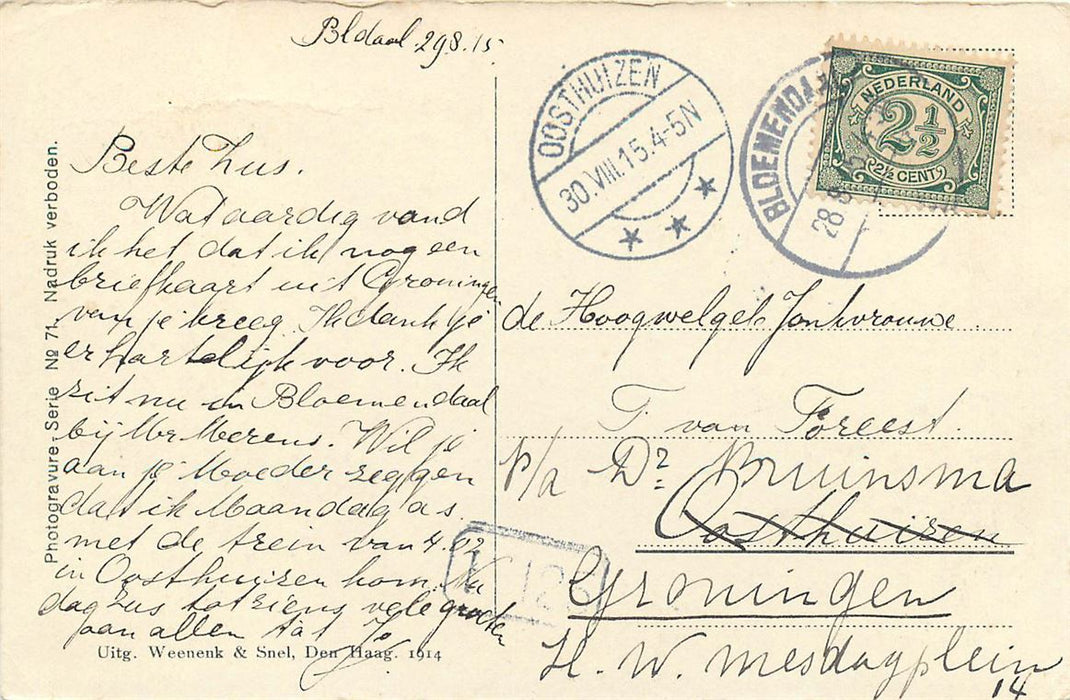 Bldaal 29.8.15
Beste Zus.
Wat aardig vond
ik het dat ik nog een
briefkaart uit Groningen
van je kreeg. Ik dank je
er hartelijk voor. Ik
zit nu in Bloemendaal
bij Mr Merens. Wil je
aan je Moeder zeggen
dat ik Maandag a s.
met de trein van 4.02
in Oosthuizen kom. Nu
dag zus tot ziens vele groeten
aan allen
Uitg. Weenenk & Snel, Den Haag. 1914
Photogravure-Serie No 71. Nadruk verboden.
OOSTHUIZEN
30.VIII.15.4-5N
BLOEMENDAAL
28.8.15
NEDERLAND
2½
2½ CENT
de Hoogwelgeb Jonkvrouwe
T van Foreest.
p/a Dr. Bruinsma
Oosthuizen
Groningen
H. W. Mesdagplein
14
126